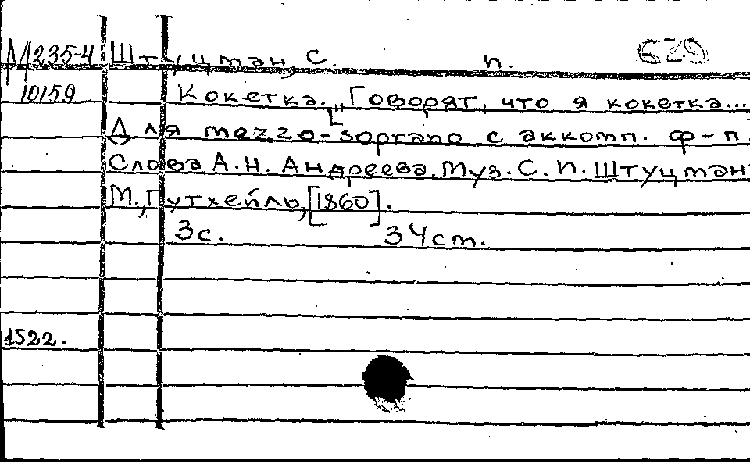 М235-4 Штуцман, С. п. 629
10159 Кокетка. „Говорят, что я кокетка...
[Для mezzo-soprano с аккомп. ф-п.
Слова А.Н. Андреева. Муз. С. П. Штуцман
М., Гутхейль, [1860].
3с. 34см.
1522.